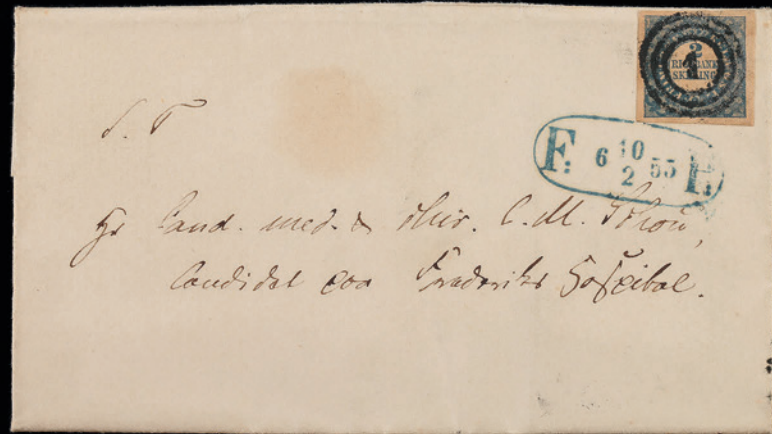 2
RIGSBANK
SKILLING
1
F: 6 10/2 55 P:
S. T
Hr Cand. med. & chir. C. M.
Candidat paa Frederiks Hospital.